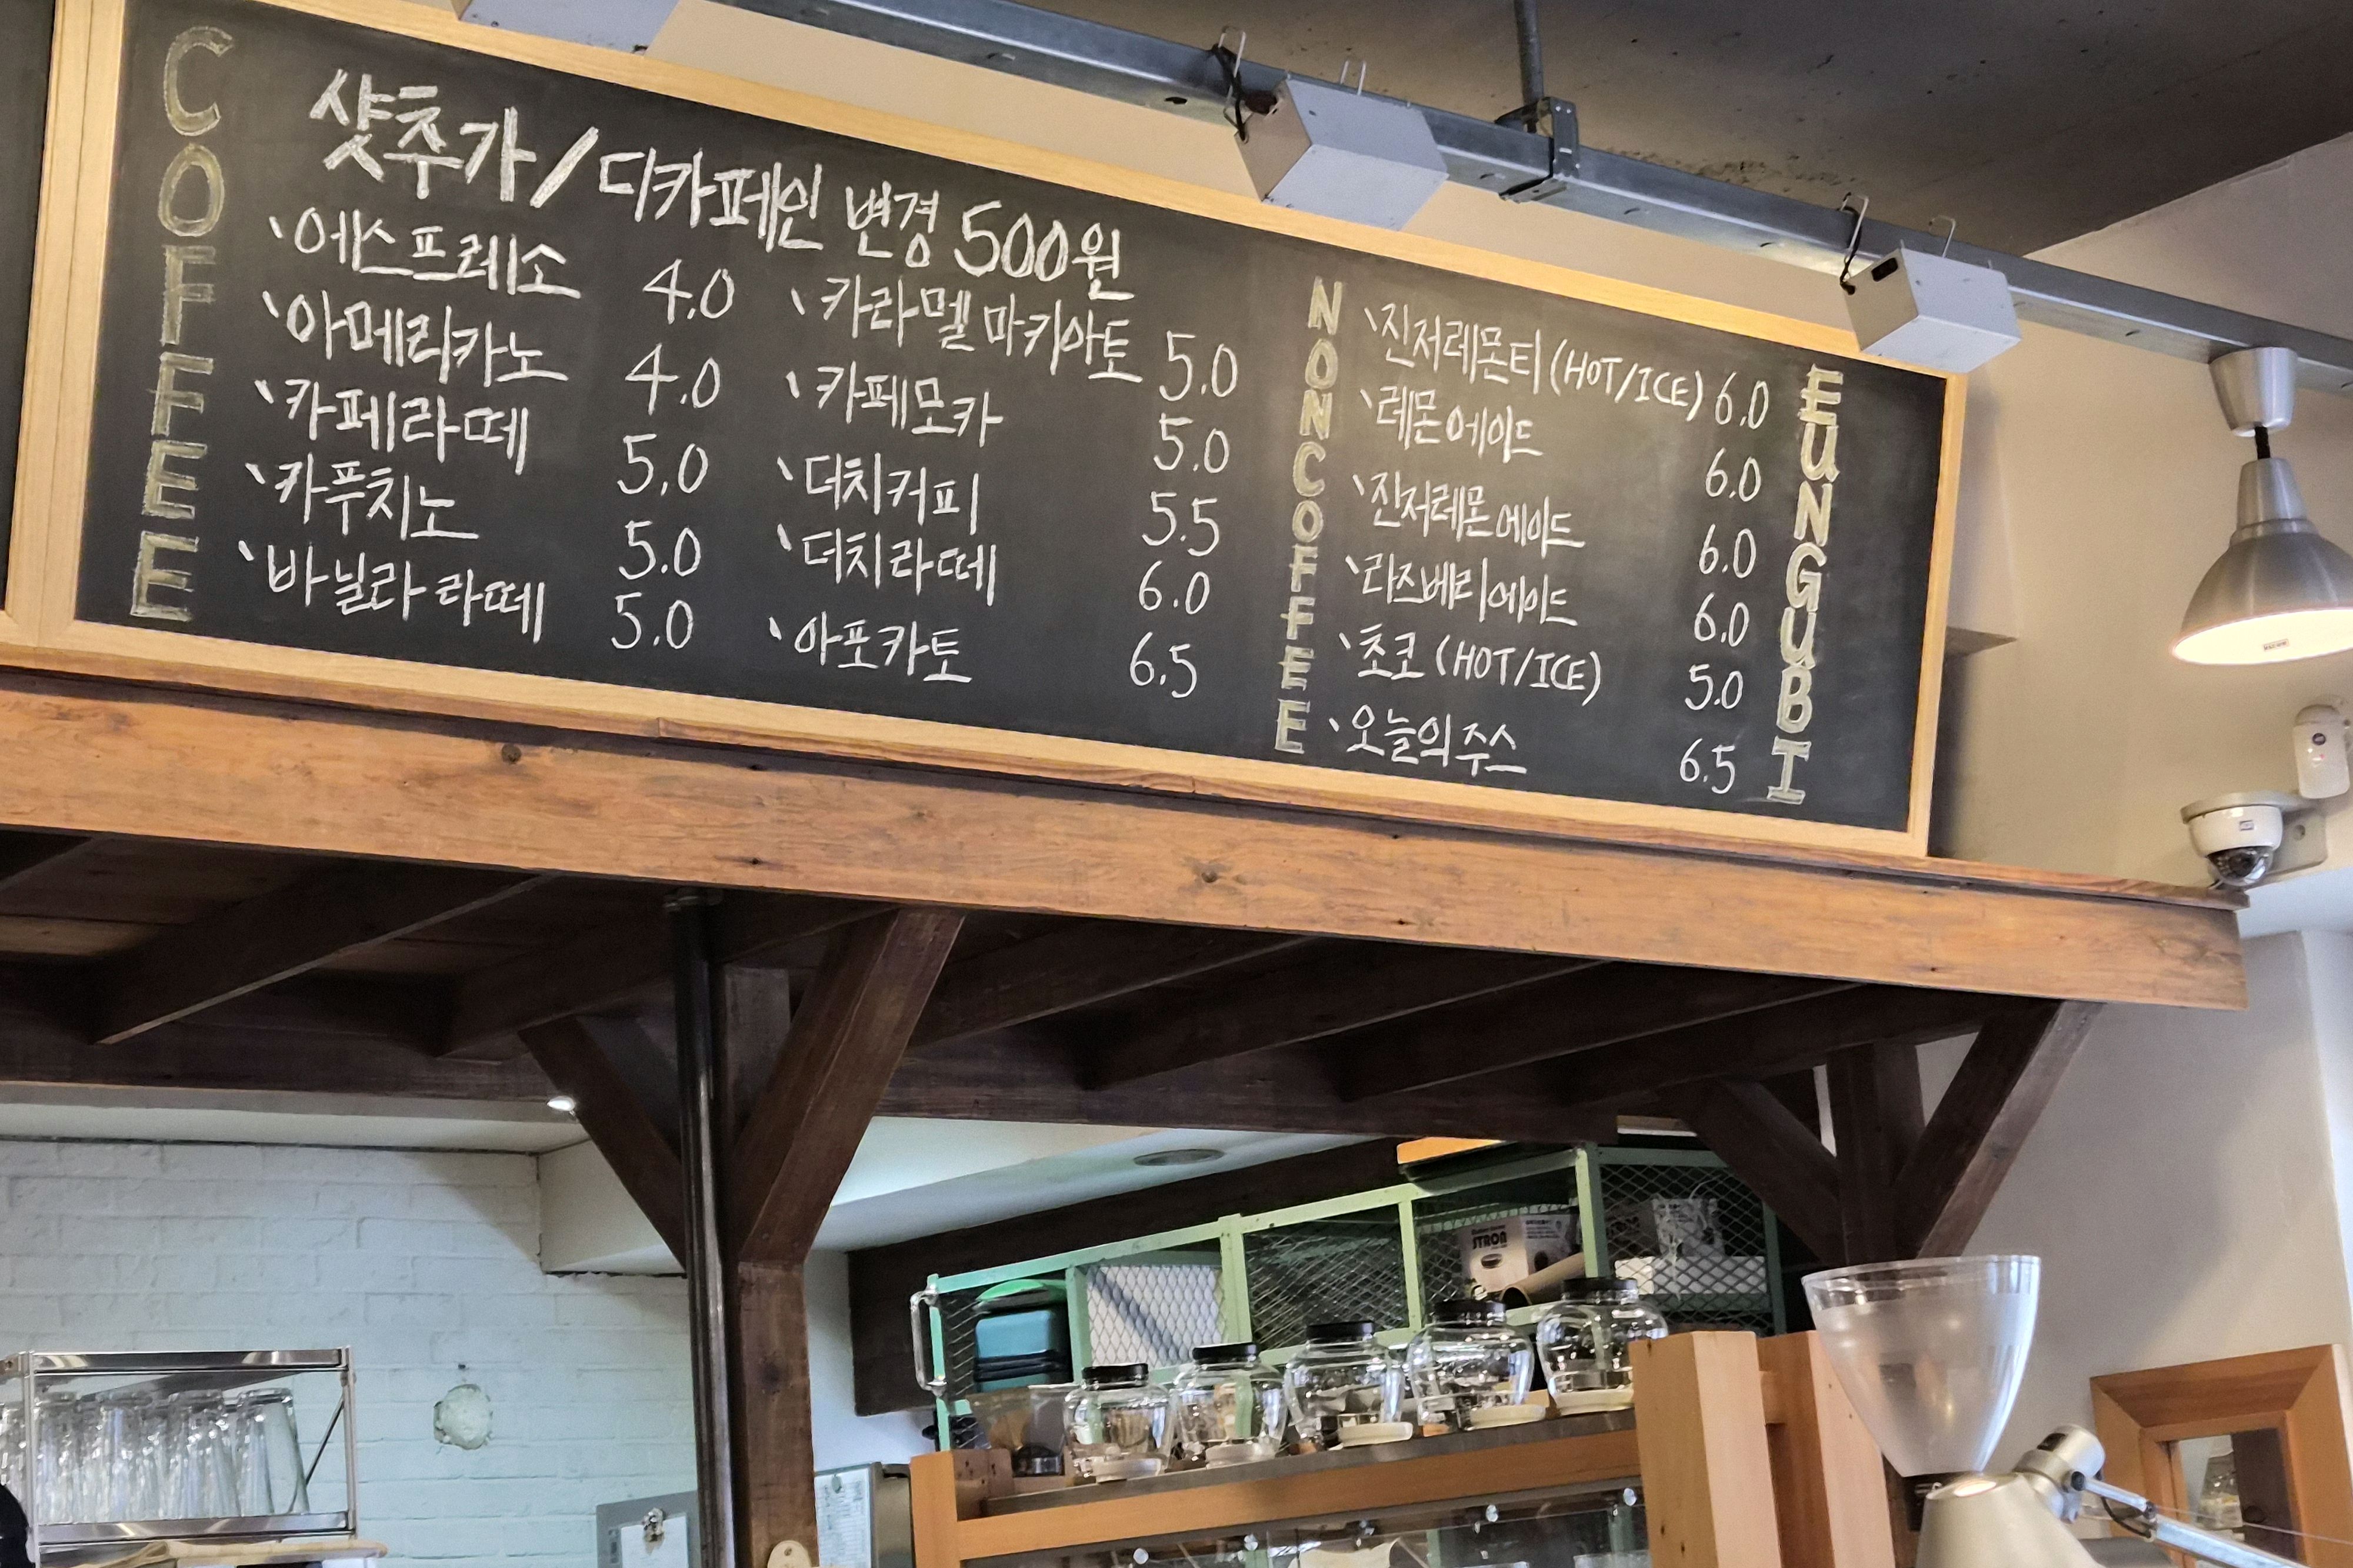 COFFEE
샷추가/디카페인 변경 500원
`에스프레소 4.0
`아메리카노 4.0
`카페라떼 5.0
`카푸치노 5.0
`바닐라 라떼 5.0
`카라멜 마키아토 5.0
`카페모카 5.0
`더치커피 5.5
`더치라떼 6.0
`아포카토 6.5
NON COFFEE
`진저레몬티 (HOT/ICE) 6.0
`레몬에이드 6.0
`진저레몬에이드 6.0
`라즈베리에이드 6.0
`초코 (HOT/ICE) 5.0
`오늘의 주스 6.5
EUNGUBI
STRON